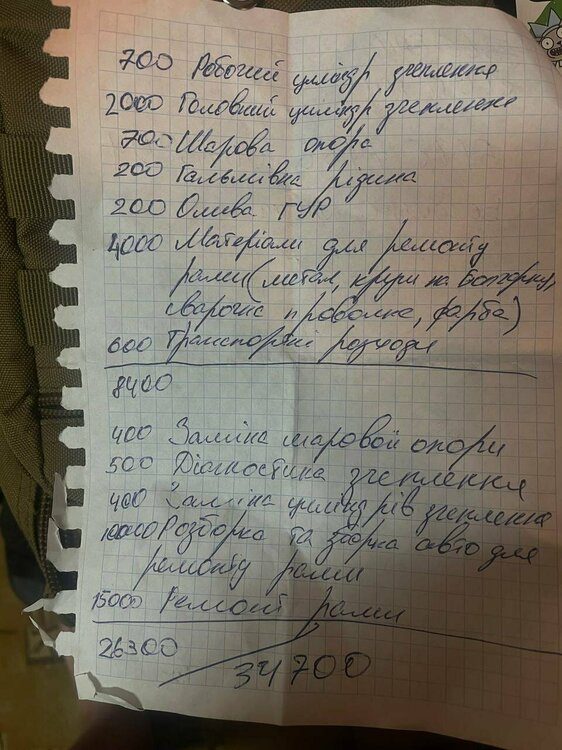 700 Робочий циліндр зчеплення
2000 Головний циліндр зчеплення
700 Шарова опора
200 Гальмівна рідина
200 Олива ГУР
4000 Матеріали для ремонту
рами (метал, круги на болгарку,
сварочна проволка, фарба)
600 Транспортні розходи
8400
400 Заміна шаровой опори
500 Діагностика зчеплення
400 Заміна циліндрів зчеплення
10000 Розборка та зборка авто для
ремонту рами
15000 Ремонт рами
26300
34700